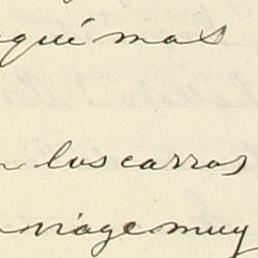 aqui mas
los carros
viage muy